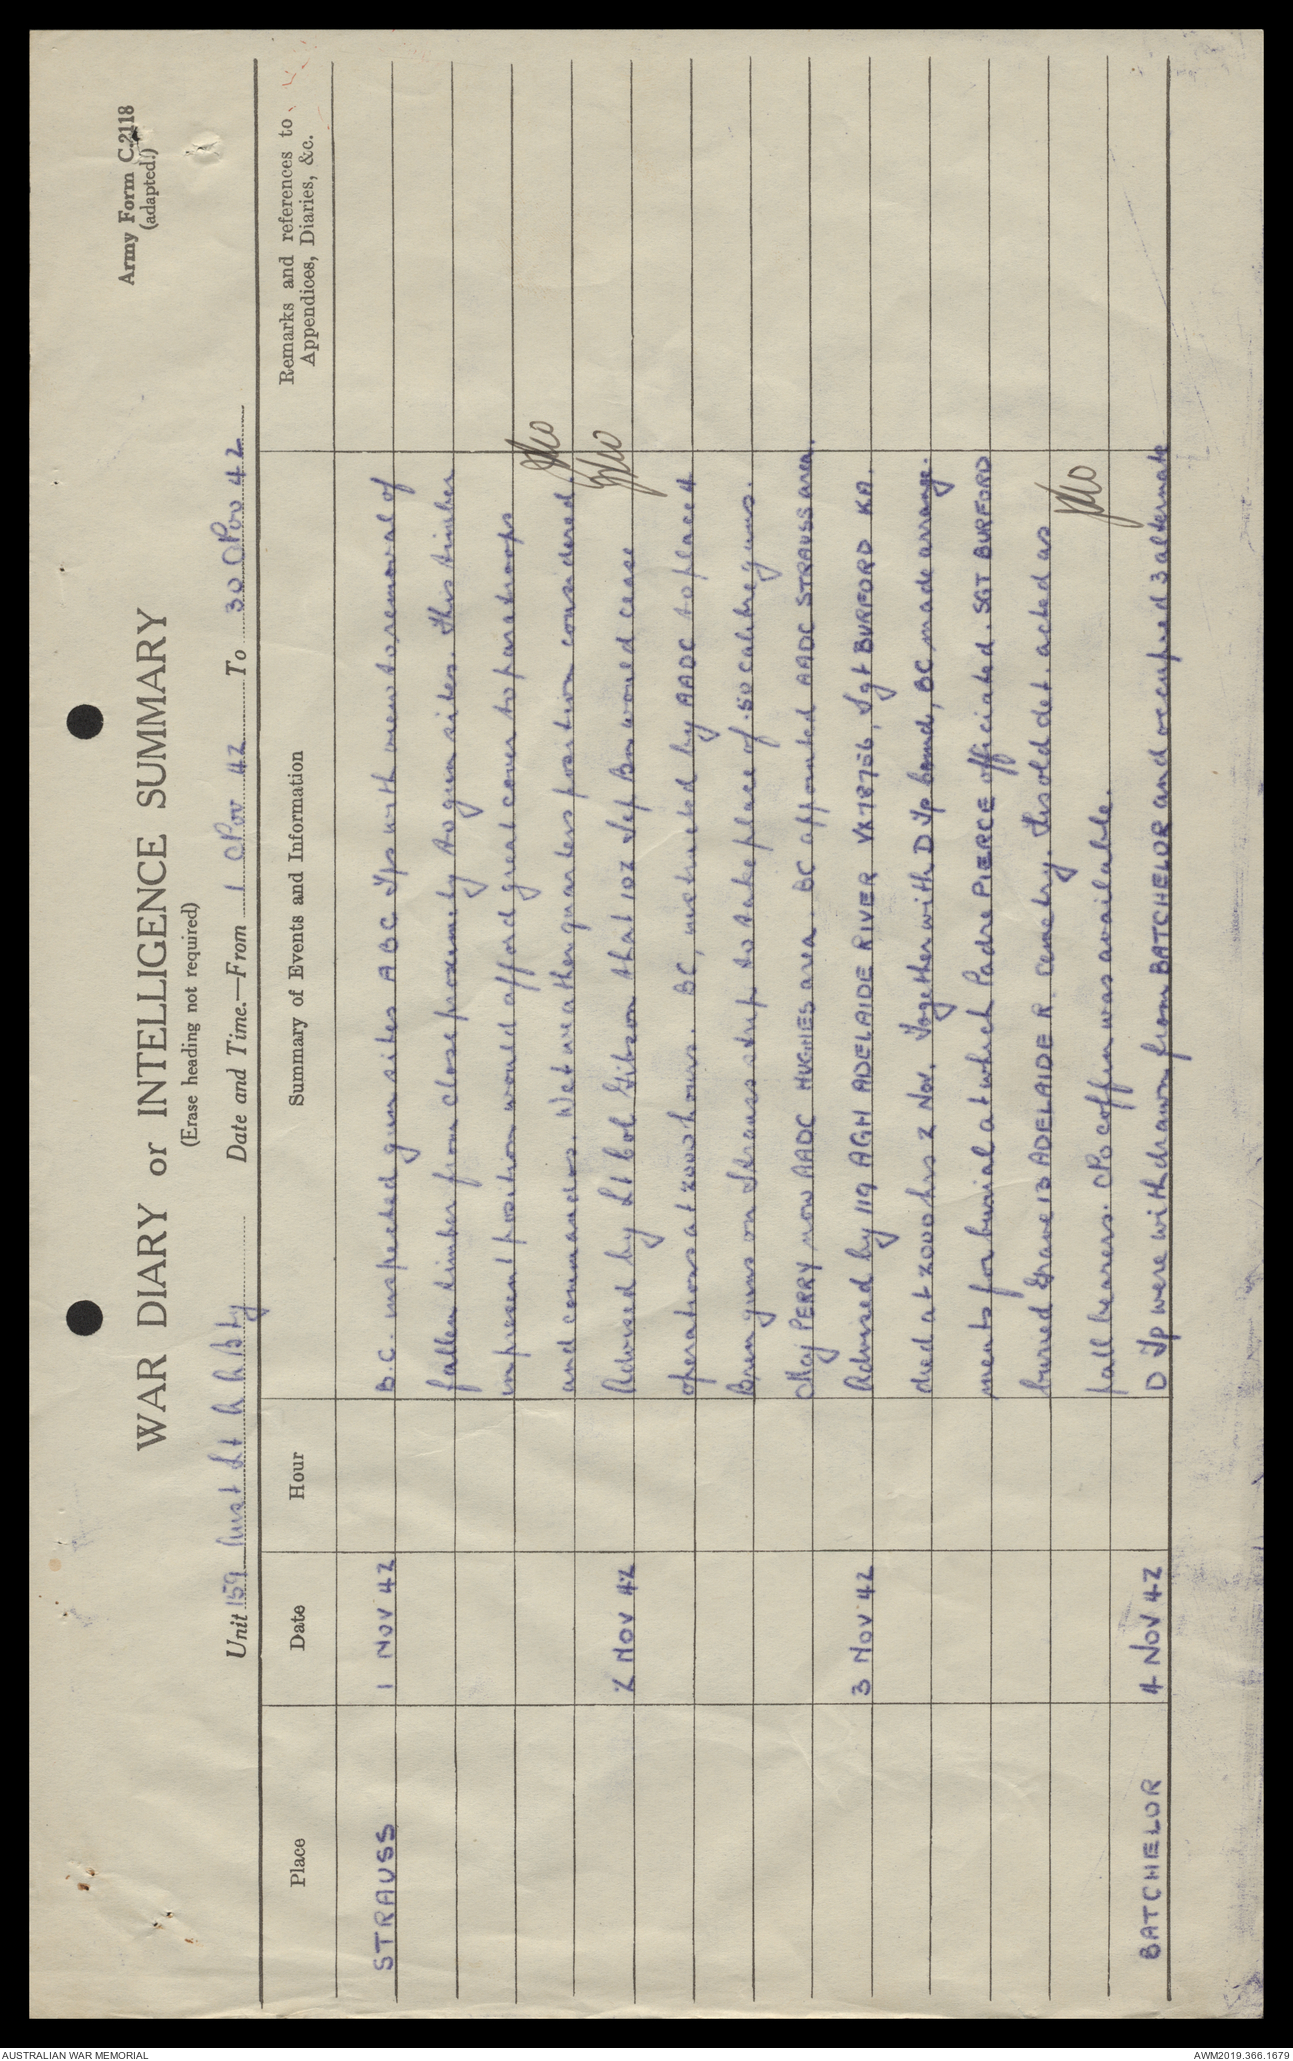 Army Form C.2118
(adapted.)
WAR DIARY or INTELLIGENCE SUMMARY
(Erase heading not required)
Unit 159 Aust Lt A A Bty Date and Time.—From 1 Nov 42 To 30 Nov 42
Place Date Hour Summary of Events and Information Remarks and references to
Appendices, Diaries, &c.
STRAUSS 1 NOV 42 B.C. inspected gun sites A B C Tps with view to removal of
fallen timber from close proximity to gun sites. This timber
in present position would afford great cover to paratroops
and commandos. Wet weather quarters position considered.
2 NOV 42 Advised by Lt Col Gibson that 102 Sep Bn would cease
operations at 2000 hours. BC, instructed by AADC to place 4
Bren guns on Strauss strip to take place of .50 calibre guns.
Maj PERRY now AADC HUGHES area. BC appointed AADC STRAUSS area.
3 NOV 42 Advised by 119 AGH ADELAIDE RIVER VX78756, Sgt BURFORD KA.
died at 2000 hrs 2 Nov. Together with D Tp comd, BC made arrange-
ments for burial at which Padre PIERCE officiated. SGT BURFORD
buried Grave 13 ADELAIDE R. cemetry. His old det. acted as
pall bearers. No coffin was available.
BATCHELOR 4 NOV 42 D Tp were withdrawn from BATCHELOR and occupied 3 alternate
AUSTRALIAN WAR MEMORIAL AWM2019.366.1679